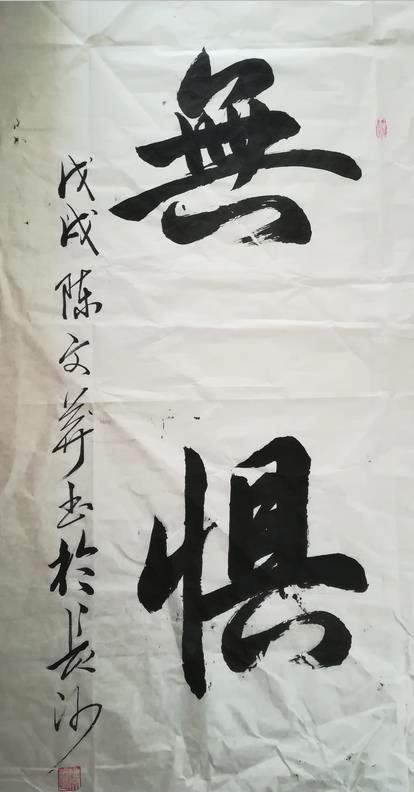 無惧
戊戌陈文莽书於長沙